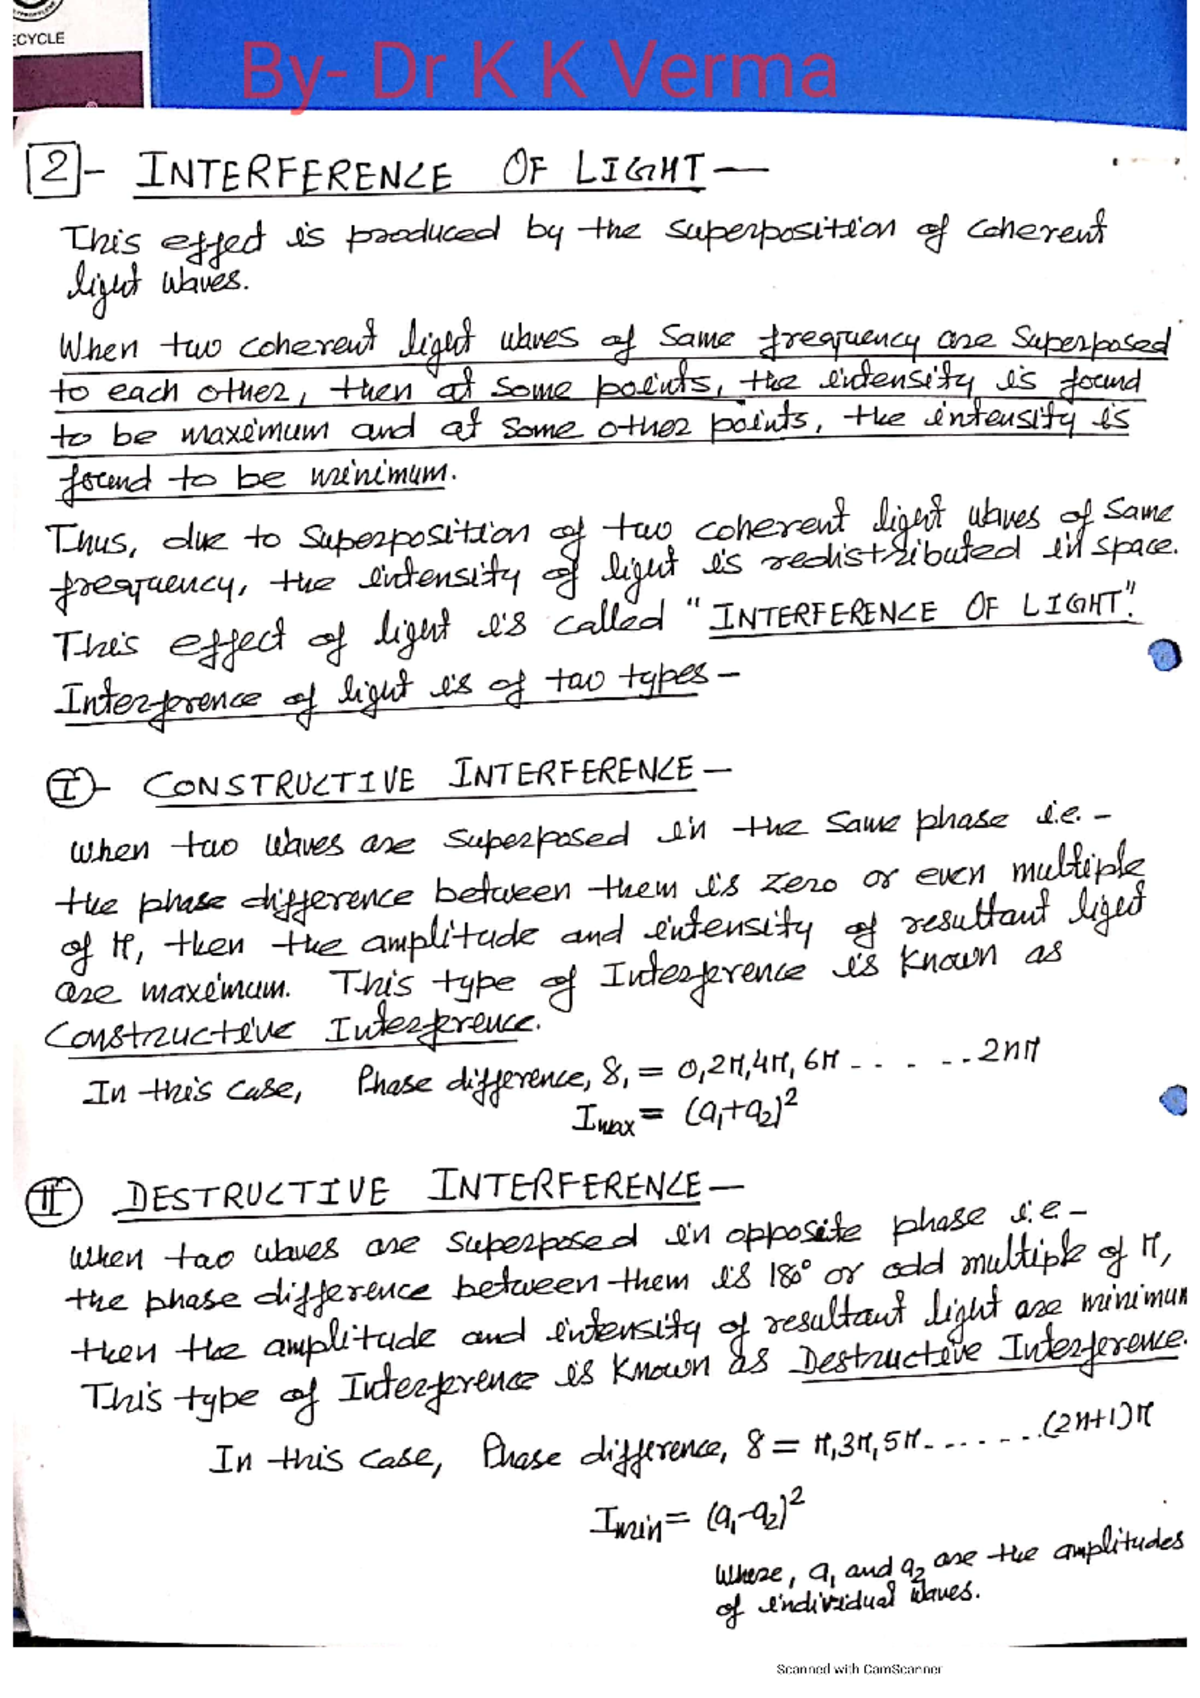 ECYCLE
By- Dr K K Verma
2 - INTERFERENCE OF LIGHT —
This effect is produced by the superposition of coherent
light waves.
When two coherent light waves of same frequency are superposed
to each other, then at some points, the intensity is found
to be maximum and at some other points, the intensity is
found to be minimum.
Thus, due to superposition of two coherent light waves of same
frequency, the intensity of light is redistributed in space.
This effect of light is called "INTERFERENCE OF LIGHT".
Interference of light is of two types –
I - CONSTRUCTIVE INTERFERENCE –
When two waves are superposed in the same phase i.e. –
the phase difference between them is zero or even multiple
of π, then the amplitude and intensity of resultant light
are maximum. This type of Interference is known as
Constructive Interference.
In this case, Phase difference, δ, = 0,2π,4π,6π - . . . . - 2nπ
Imax = (a₁+a₂)²
II DESTRUCTIVE INTERFERENCE –
When two waves are superposed in opposite phase i.e –
the phase difference between them is 180° or odd multiple of π,
then the amplitude and intensity of resultant light are minimum
This type of Interference is known as Destructive Interference.
In this case, Phase difference, δ = π,3π,5π.......(2n+1)π
Imin = (a₁-a₂)²
where, a₁ and a₂ are the amplitudes
of individual waves.
Scanned with CamScanner